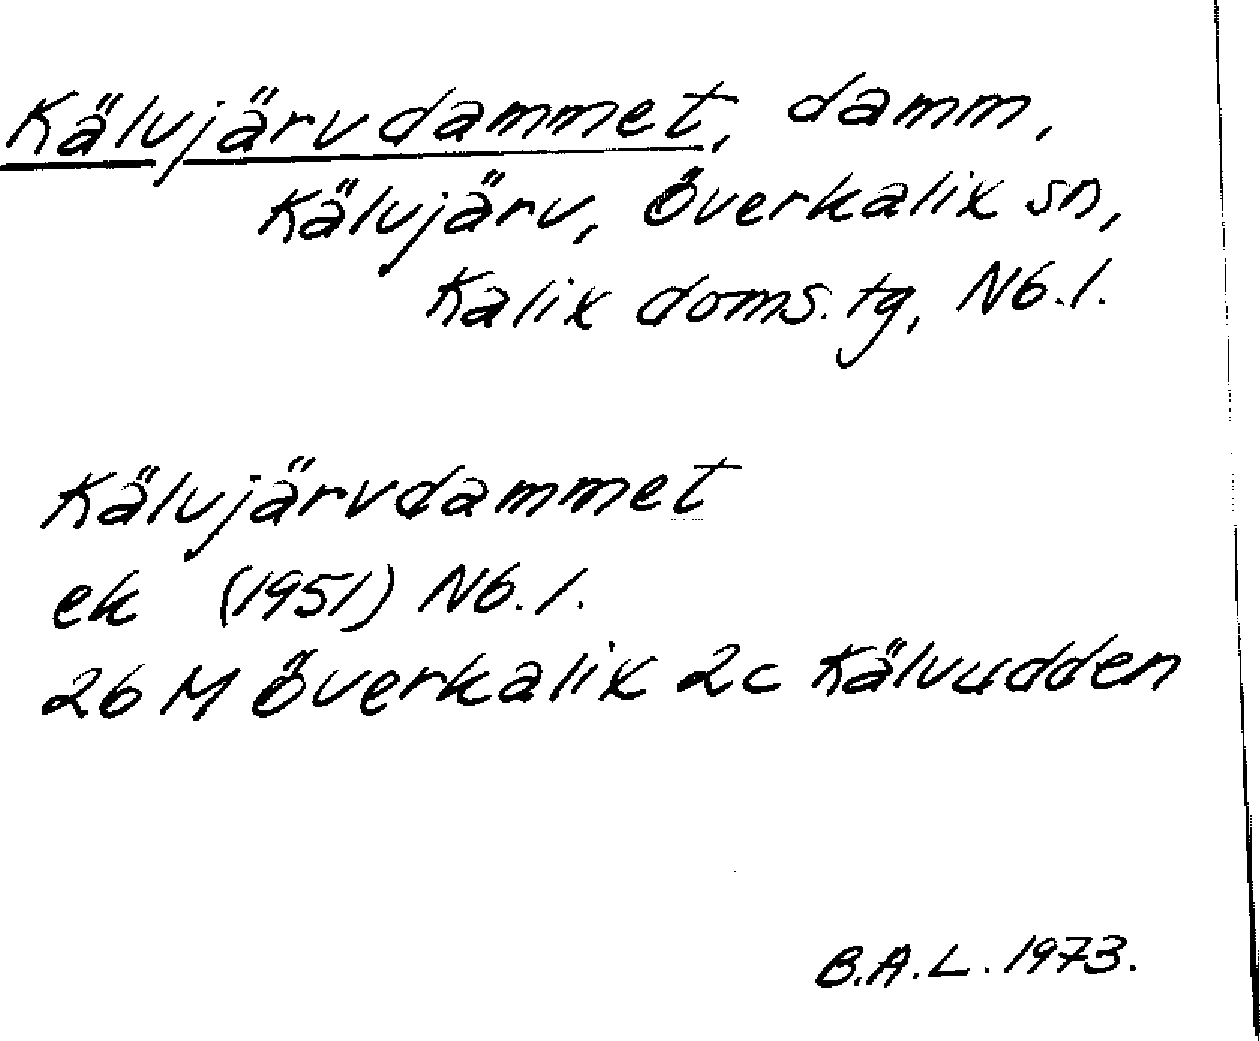 Kälvjärvdammet, damm,
Kälvjärv, Överkalix sn,
Kalix doms. tg, Nb. l.
Kälvjärvdammet
ek (1951) Nb. l.
26 M Överkalix 2c Kälvudden
B.A.L. 1973.